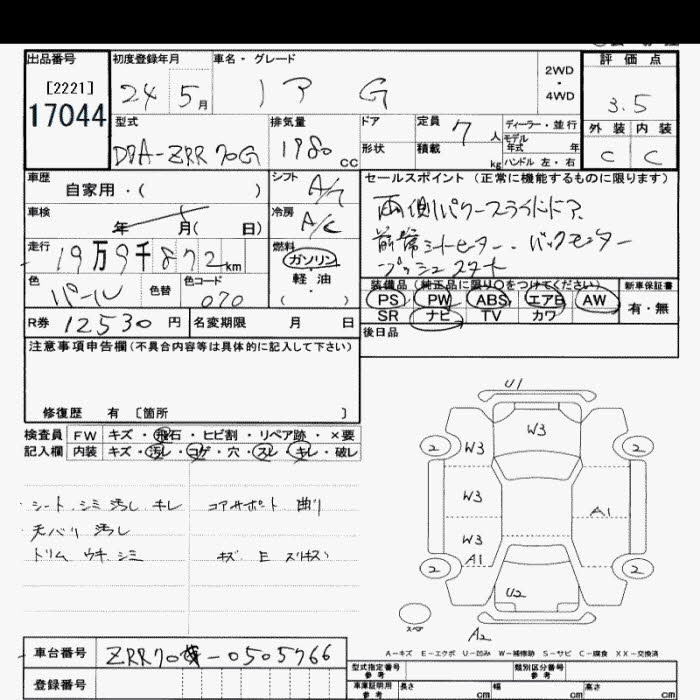 出品番号 初度登録年月 車名・グレード 評価点
[2221] 24 5月 ノア G 2WD・4WD 3.5
17044
型式 排気量 ドア 定員 7人 ディーラー・並行 外装 内装
モデル年式 年
DBA-ZRR70G 1980cc 形状 積載 kg ハンドル 左・右 C C
車歴 シフト A/T セールスポイント(正常に機能するものに限ります)
自家用・( )
両側パワースライドドア
車検 年 月( 日) 冷房 A/C
前席シートヒーター・バックモニター
走行 19万9千872km 燃料 ガソリン・軽油・( )
プッシュスタート
色 パール 色替 色コード 070
装備品(純正品に限り○をつけてください) 新車保証書
PS PW ABS エアB AW 有・無
SR ナビ TV カワ
R券 12530円 名変期限 月 日
後日品
注意事項申告欄(不具合内容等は具体的に記入して下さい)
修復歴 有 〔箇所 〕
検査員 FW キズ・飛石・ヒビ割・リペア跡・×要
記入欄 内装 キズ・汚レ・コゲ・穴・スレ・キレ・破レ
シート シミ 汚レ キレ コアサポート 曲り
天バリ 汚レ
トリム ウキ シミ
U1
W3
2 W3 2
W3 A1
W3
A1
2 2
U2
スペア
A2
A-キズ E-エクボ U-凹み W-補修跡 S-サビ C-腐食 XX-交換済
車台番号 ZRR70-0505766
型式指定番号 参考 類別区分番号 参考
登録番号 車庫証明用 参考 長さ cm 幅 cm 高さ cm